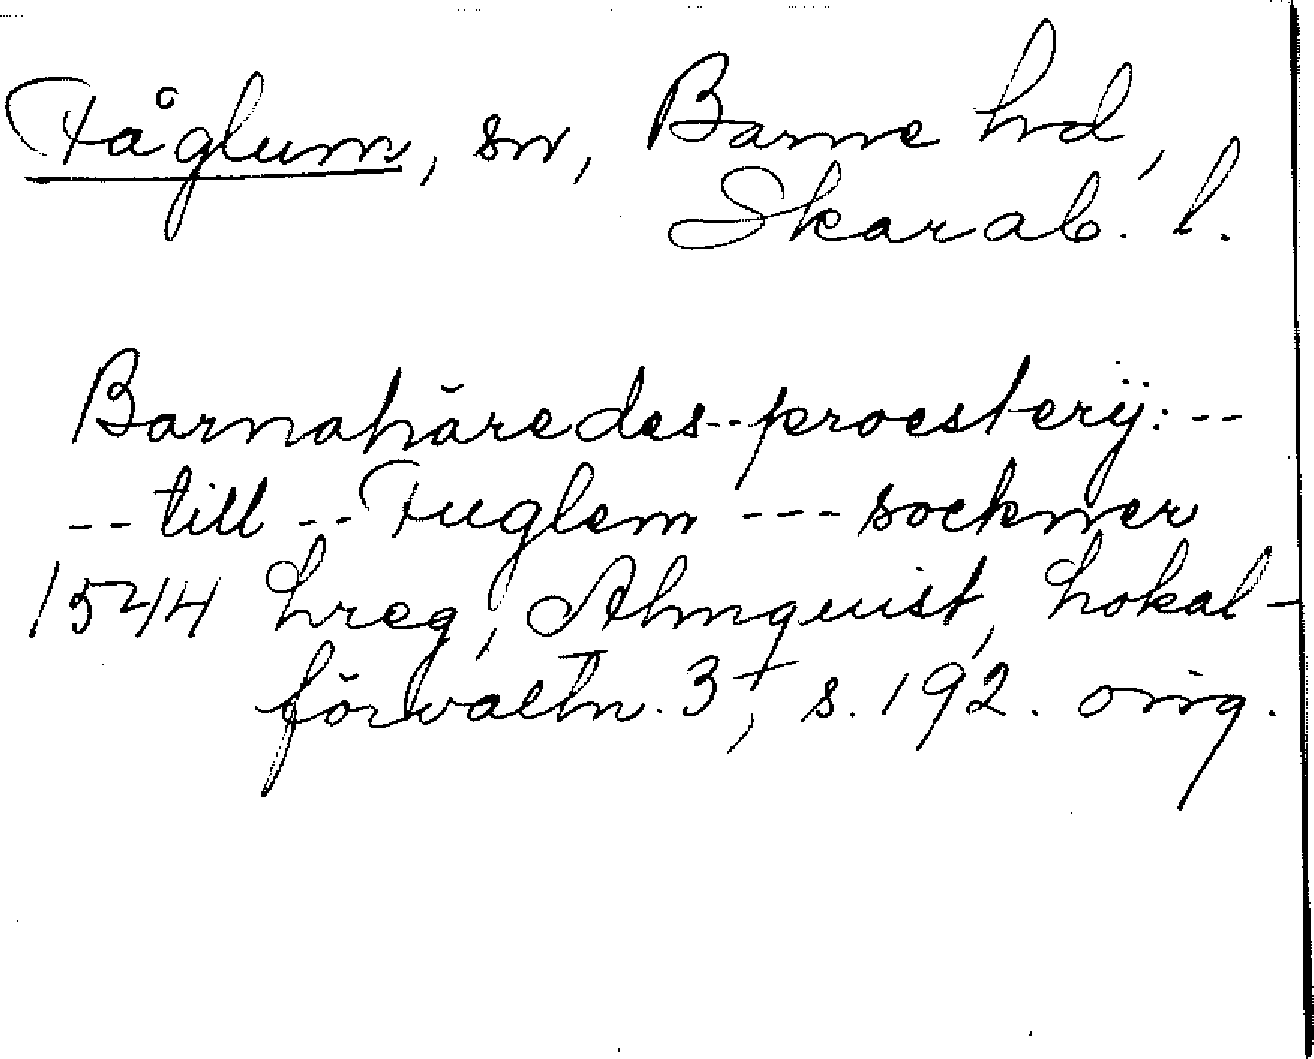 Fåglum, sn, Barne hd,
Skarab. l.
Barnahäredes--proesterÿ:--
-- till -- Fuglem --- sockner
1544 Lreg, Almquist, Lokal-
förvaltn. 3, s. 192. orig.